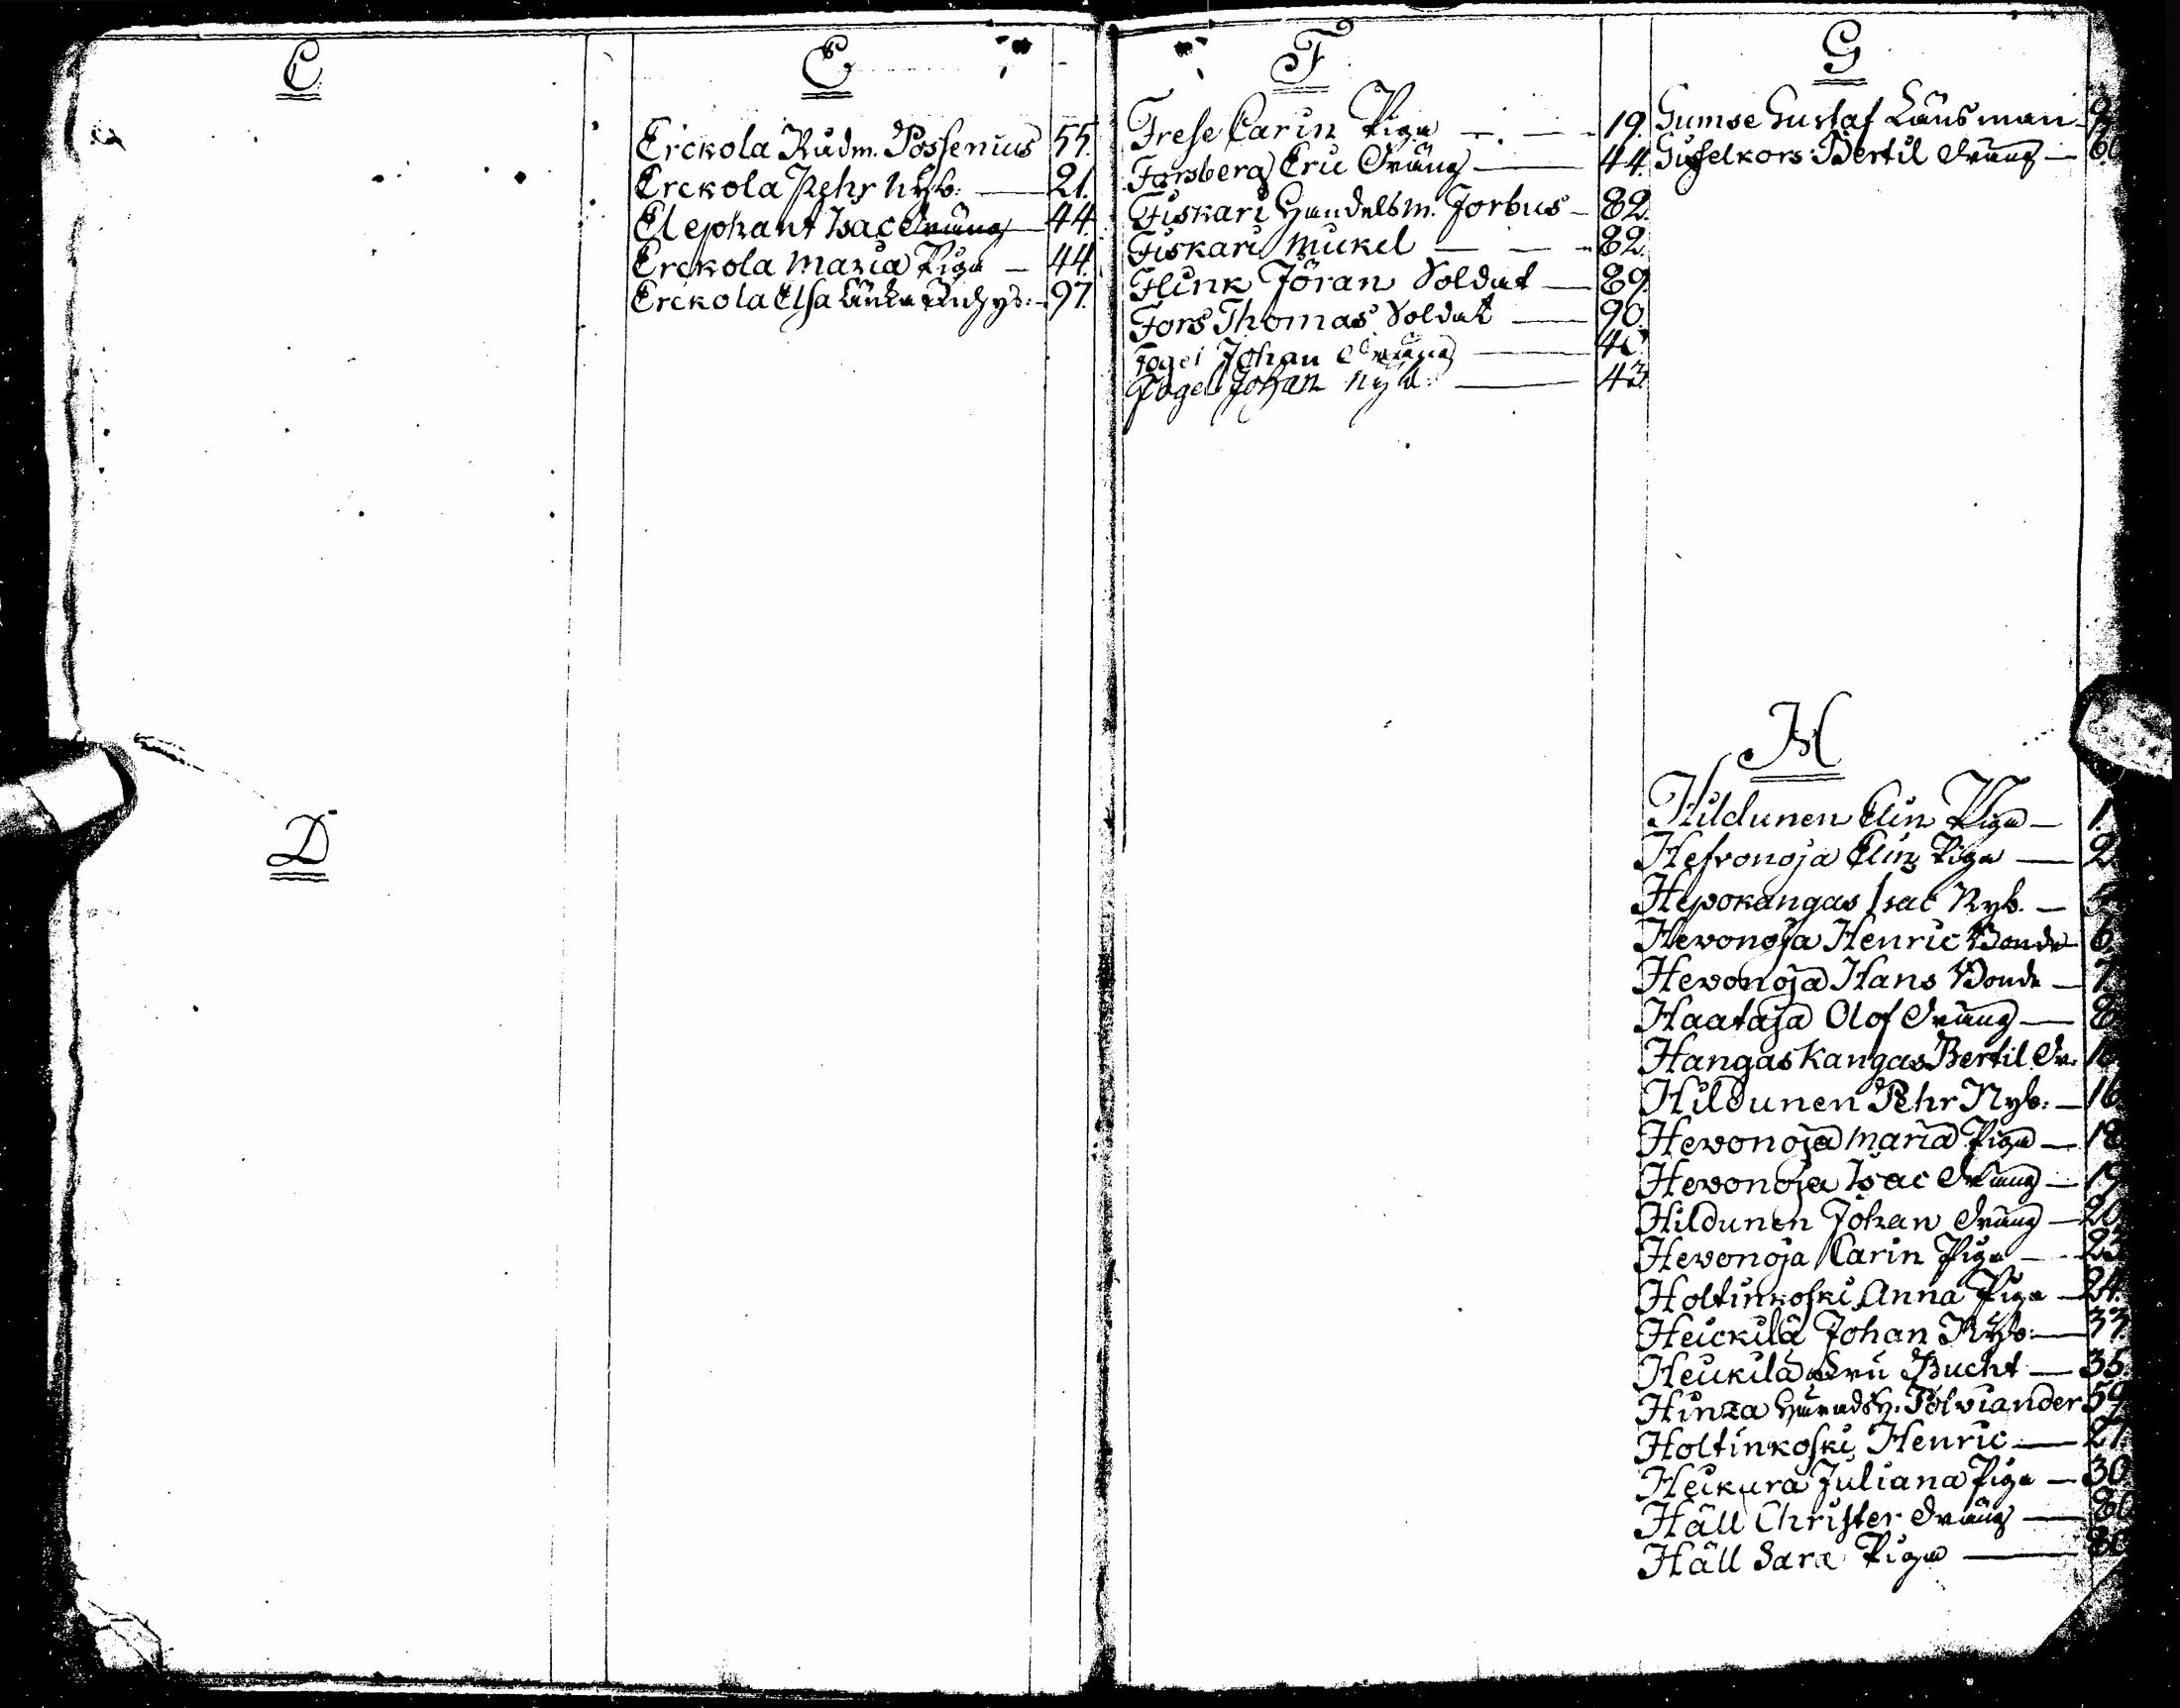 C
D
E
Erckola Rudm. Possenius 55.
Erckola Pehr Nyb: 21.
Elephant Isac Dräng 44.
Erckola Maria Piga 44.
Erckola Elsa Enka Nyb: 97.
F
Frese Carin Piga 19.
Forsberg Eric Dräng 44.
Fiskari Handelsm. Forbus 82.
Fiskari Mickel 82.
Flink Jöran Soldat 89.
Fors Thomas Soldat 90.
Fogel Johan Dräng
Fogel Johan Nyb: 43.
G
Gumse Gustaf Länsman
Bertil Dräng
H
Hildunen Elin Piga 1.
Hefvonoja Elin Piga 2.
Hepokangas Isac Nyb.
Hevonoja Henric Bonde 6.
Hevonoja Hans Bonde 7.
Haataja Olof Dräng 8
Hangaskangas Bertil Dr.
Hildunen Pehr Nyb: 16
Hevonoja Maria Piga 18
Hevonoja Isac Dräng 19
Hildunen Johan Dräng 20.
Hevonoja Carin Piga 23
Holtinkoski Anna Piga 24.
Heickilä Johan Nyb: 33
Heickilä Eric Bucht 35.
Hinza Häradsh. Polviander 59.
Holtinkoski Henric 27.
Heikura Juliana Piga 30
Häll Christer Dräng 80
Häll Sara Piga 80